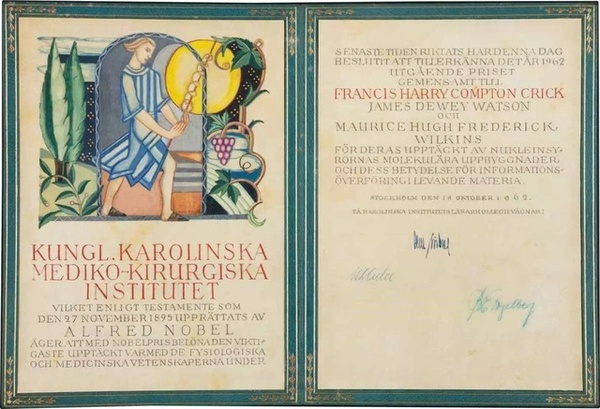 KUNGL. KAROLINSKA
MEDIKO-KIRURGISKA
INSTITUTET
VILKET ENLIGT TESTAMENTE SOM
DEN 27 NOVEMBER 1895 UPPRÄTTATS AV
ALFRED NOBEL
ÄGER ATT MED NOBELPRIS BELÖNA DEN VIKTI-
GASTE UPPTÄCKT VARMED DE FYSIOLOGISKA
OCH MEDICINSKA VETENSKAPERNA UNDER
SENASTE TIDEN RIKTATS HAR DENNA DAG
BESLUTIT ATT TILLERKÄNNA DET ÅR 1962
UTGÅENDE PRISET
GEMENSAMT TILL
FRANCIS HARRY COMPTON CRICK
JAMES DEWEY WATSON
OCH
MAURICE HUGH FREDERICK
WILKINS
FÖR DERAS UPPTÄCKT AV NUKLEINSY-
RORNAS MOLEKULÄRA UPPBYGGNAD
OCH DESS BETYDELSE FÖR INFORMATIONS-
ÖVERFÖRING I LEVANDE MATERIA.
STOCKHOLM DEN 18 OKTOBER 1962.
PÅ KAROLINSKA INSTITUTETS LÄRARKOLLEGII VÄGNAR: